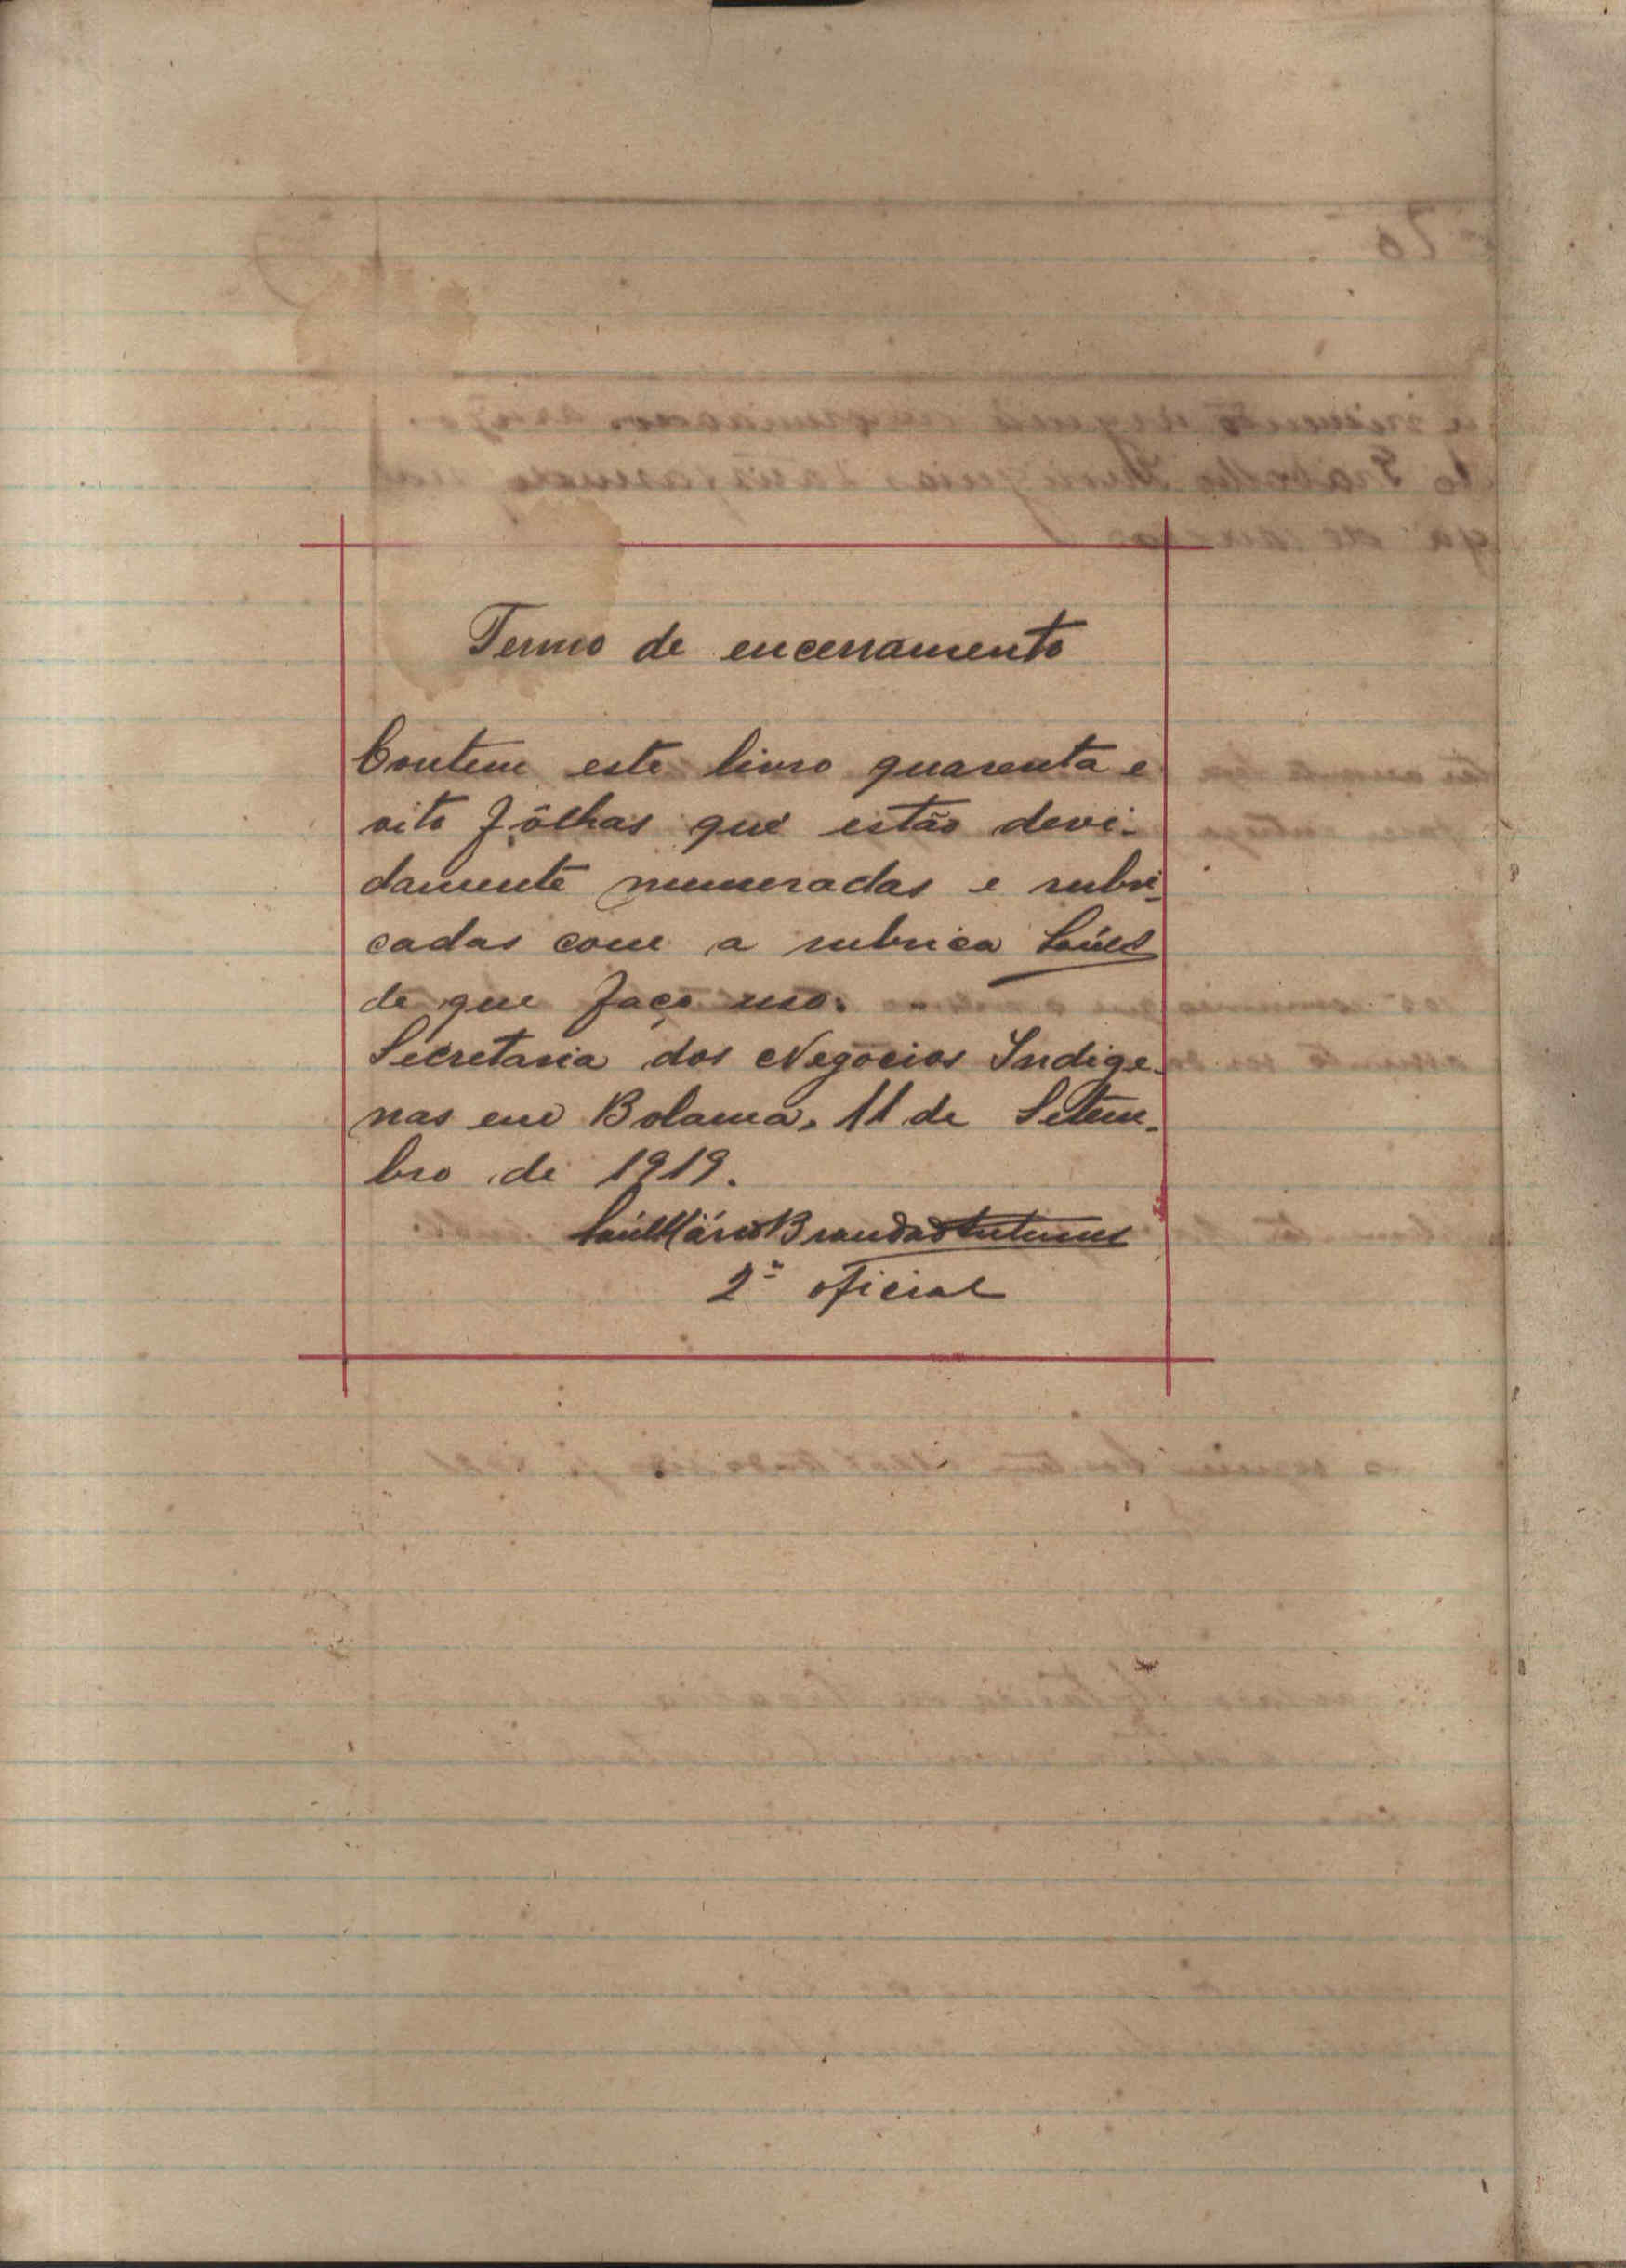 Termo de encerramento
Contem este livro quarenta e
oito fôlhas que estão devi-
damente numeradas e rubri-
cadas com a rubrica Saúl
de que faço uso.
Secretaria dos Negocios Indige-
nas em Bolama, 11 de Setem-
bro de 1919.
Saúl Mário Brandão Antunes
2º oficial